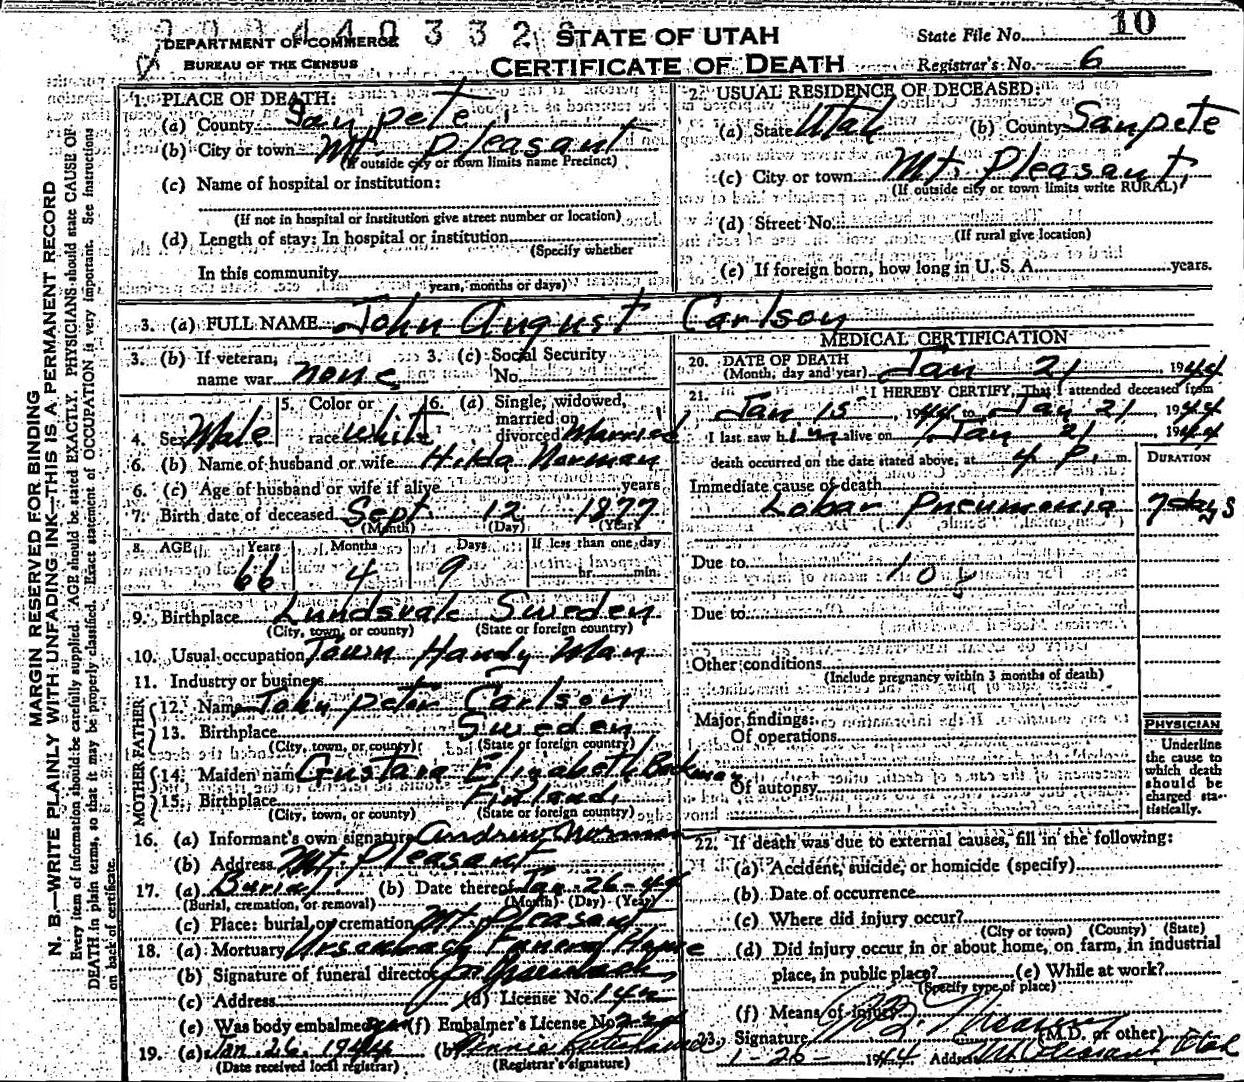 10
STATE OF UTAH
State File No.
DEPARTMENT OF COMMERCE
BUREAU OF THE CENSUS
CERTIFICATE OF DEATH
Registrar's No. 6
MARGIN RESERVED FOR BINDING
N. B.—WRITE PLAINLY WITH UNFADING INK—THIS IS A PERMANENT RECORD
Every item of information should be carefully supplied. AGE should be stated EXACTLY. PHYSICIANS should state CAUSE OF
DEATH in plain terms, so that it may be properly classified. Exact statement of OCCUPATION is very important. See instructions
on back of certificate.
1. PLACE OF DEATH:
(a) County San pete,
(b) City or town Mt. Pleasant
(If outside city or town limits name Precinct)
(c) Name of hospital or institution:
(If not in hospital or institution give street number or location)
(d) Length of stay: In hospital or institution
(Specify whether
In this community
years, months or days)
2. USUAL RESIDENCE OF DECEASED:
(a) State Utah (b) County Sanpete
(c) City or town Mt. Pleasant,
(If outside city or town limits write RURAL)
(d) Street No.
(If rural give location)
(e) If foreign born, how long in U. S. A. years.
3. (a) FULL NAME John August Carlson
3. (b) If veteran, name war none 3. (c) Social Security No.
4. Sex Male 5. Color or race White 6. (a) Single, widowed, married or divorced Married
6. (b) Name of husband or wife Hilda Norman
6. (c) Age of husband or wife if alive years
7. Birth date of deceased Sept 12 1877
(Month) (Day) (Year)
8. AGE Years Months Days If less than one day
66 4 9 hr. min.
9. Birthplace Lundsvale Sweden
(City, town, or county) (State or foreign country)
10. Usual occupation Town Handy Man
11. Industry or business
FATHER
12. Name John peter Carlson
13. Birthplace Sweden
(City, town, or county) (State or foreign country)
MOTHER
14. Maiden name Gustava Elizabeth Backman
15. Birthplace Finland
(City, town, or county) (State or foreign country)
16. (a) Informant's own signature Andrew Norman
(b) Address Mt. Pleasant
17. (a) Burial (b) Date thereof Jan-26-44
(Burial, cremation, or removal) (Month) (Day) (Year)
(c) Place: burial or cremation Mt. Pleasant
18. (a) Mortuary Ursenbach Funeral Home
(b) Signature of funeral director Ursenbach
(c) Address (d) License No.
(e) Was body embalmed (f) Embalmer's License No.
19. (a) Jan. 26, 1944 (b)
(Date received local registrar) (Registrar's signature)
MEDICAL CERTIFICATION
20. DATE OF DEATH Jan 21, 1944
(Month, day and year)
21. I HEREBY CERTIFY, That I attended deceased from
Jan 15, 1944 to Jan 21 1944
I last saw him alive on Jan 21 1944
death occurred on the date stated above, at 4 P. m. DURATION
Immediate cause of death
Lobar Pneumonia 7 days
Due to 108
Due to
Other conditions
(Include pregnancy within 3 months of death)
Major findings:
Of operations
Of autopsy
PHYSICIAN
Underline
the cause to
which death
should be
charged sta-
tistically.
22. If death was due to external causes, fill in the following:
(a) Accident, suicide, or homicide (specify)
(b) Date of occurrence
(c) Where did injury occur?
(City or town) (County) (State)
(d) Did injury occur in or about home, on farm, in industrial
place, in public place? (e) While at work?
(Specify type of place)
(f) Means of injury
23. Signature (M.D. or other)
1-26-1944 Address Mt Pleasant Utah